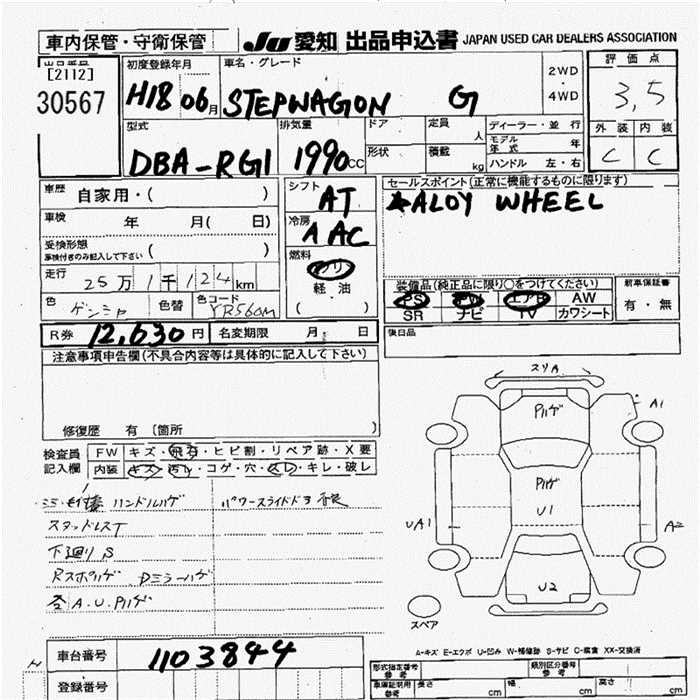 車内保管・守衛保管
JU 愛知 出品申込書 JAPAN USED CAR DEALERS ASSOCIATION
出品番号
[2112]
30567
初度登録年月
H18 06月
車名・グレード
STEPWAGON G
2WD
4WD
評価点
3,5
外装 内装
C C
型式
DBA-RG1
排気量
1990cc
ドア
形状
定員 人
積載 kg
ディーラー・並行
モデル年式 年
ハンドル 左・右
車歴 自家用・( )
車検 年 月( 日)
受検形態
車検付きのみ記入して下さい ( )
走行 25万1千124km
色 色替 色コード YR560M
シフト AT
冷房 AAC
燃料
ガソリ
軽・油
( )
セールスポイント(正常に機能するものに限ります)
ALOY WHEEL
装備品(純正品に限り○をつけてください)
PS PW エアB AW
SR ナビ TV カワシート
新車保証書
有・無
後日品
R券 12,630円 名変期限 月 日
注意事項申告欄(不具合内容等は具体的に記入して下さい)
修復歴 有 (箇所 )
検査員記入欄
FW キズ・飛石・ヒビ割・リペア跡・X要
内装 キズ・汚レ・コゲ・穴・スレ・キレ・破レ
ハンドルハゲ パワースライドドア
スタッドレスT
下廻りS
RスポハゲDミラーハゲ
A.U.Pハゲ
スリA
Pハゲ
A1
Pハゲ
U1
UA1
A2
U2
スペア
A-キズ E-エクボ U-凹み W-補修跡 S-サビ C-腐食 XX-交換済
車台番号 1103844
登録番号
形式指定番号
参考
類別区分番号
参考
車庫証明用
参考
長さ cm 幅 cm 高さ cm